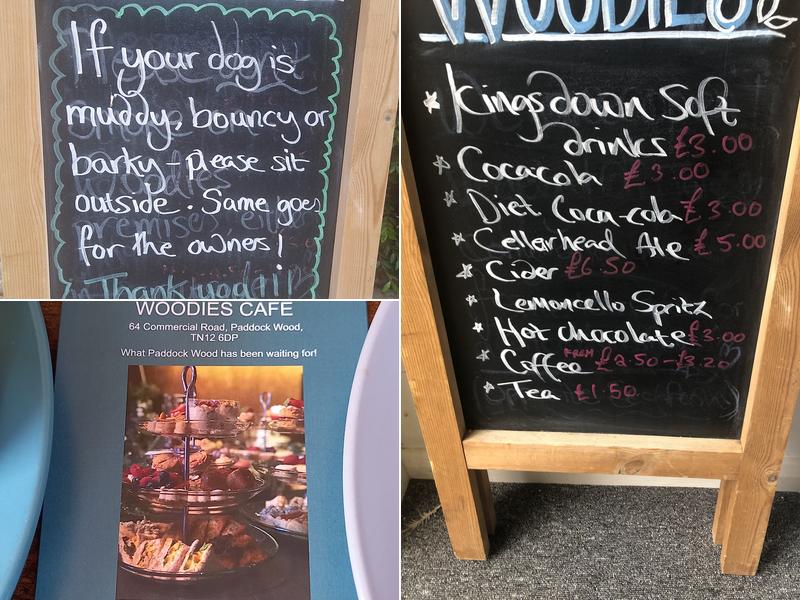 If your dog is
muddy, bouncy or
barky - please sit
outside. Same goes
for the owners!
WOODIES CAFE
64 Commercial Road, Paddock Wood,
TN12 6DP
What Paddock Wood has been waiting for!
WOODIES
Kingsdown Soft
drinks £3.00
Cocacola £3.00
Diet Coca-cola £3.00
Cellarhead Ale £5.00
Cider £6.50
Lemoncello Spritz
Hot chocolate £3.00
Coffee FROM £2.50-£3.20
Tea £1.50